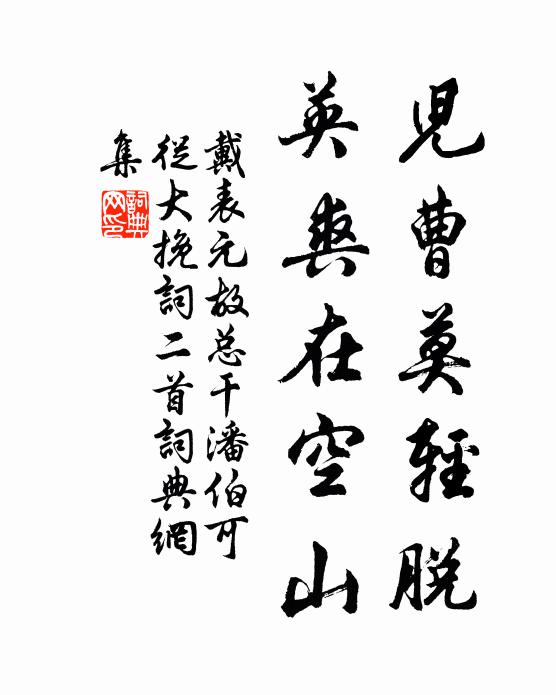 兒曹莫輕脱
英爽在空山
戴表元故总干潘伯可
從大挽詞二首詞典網
集
詞典
网印